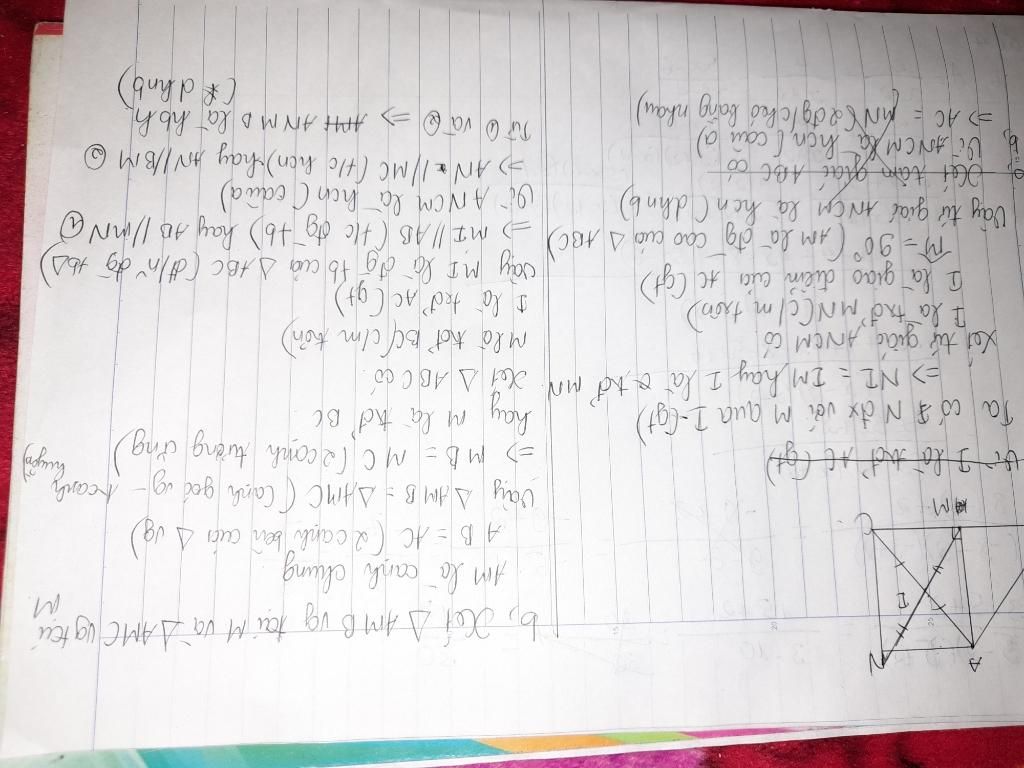 A
N
I
C
M
Vì I là trđ AC (gt)
Ta có N đx với M qua I (gt)
=> NI = IM hay I là trđ MN
Xét tứ giác ANCM có
I là trđ MN (c/m trên)
I là giao điểm của AC (gt)
M = 90° (AM là đg cao của Δ ABC)
Vậy tứ giác ANCM là hcn (dhnb)
Xét tam giác ABC có
b, Vì ANCM là hcn (câu a)
=> AC = MN (2 đg chéo bằng nhau)
b, Xét Δ AMB vg tại M và Δ AMC vg tại M
AM là cạnh chung
AB = AC (2 cạnh bên của Δ vg)
Vậy Δ AMB = Δ AMC (cạnh góc vg - cạnh huyền)
=> MB = MC (2 cạnh tương ứng)
hay M là trđ BC
Xét Δ ABC có
M là trđ BC (c/m trên)
I là trđ AC (gt)
Vậy MI là đg tb của Δ ABC (đ/n đg tb Δ)
=> MI // AB (t/c đg tb) hay AB // MN ①
Vì ANCM là hcn (câu a)
=> AN // MC (t/c hcn) hay AN // BM ②
Từ ① và ② => ANMB là hbh
(dhnb)